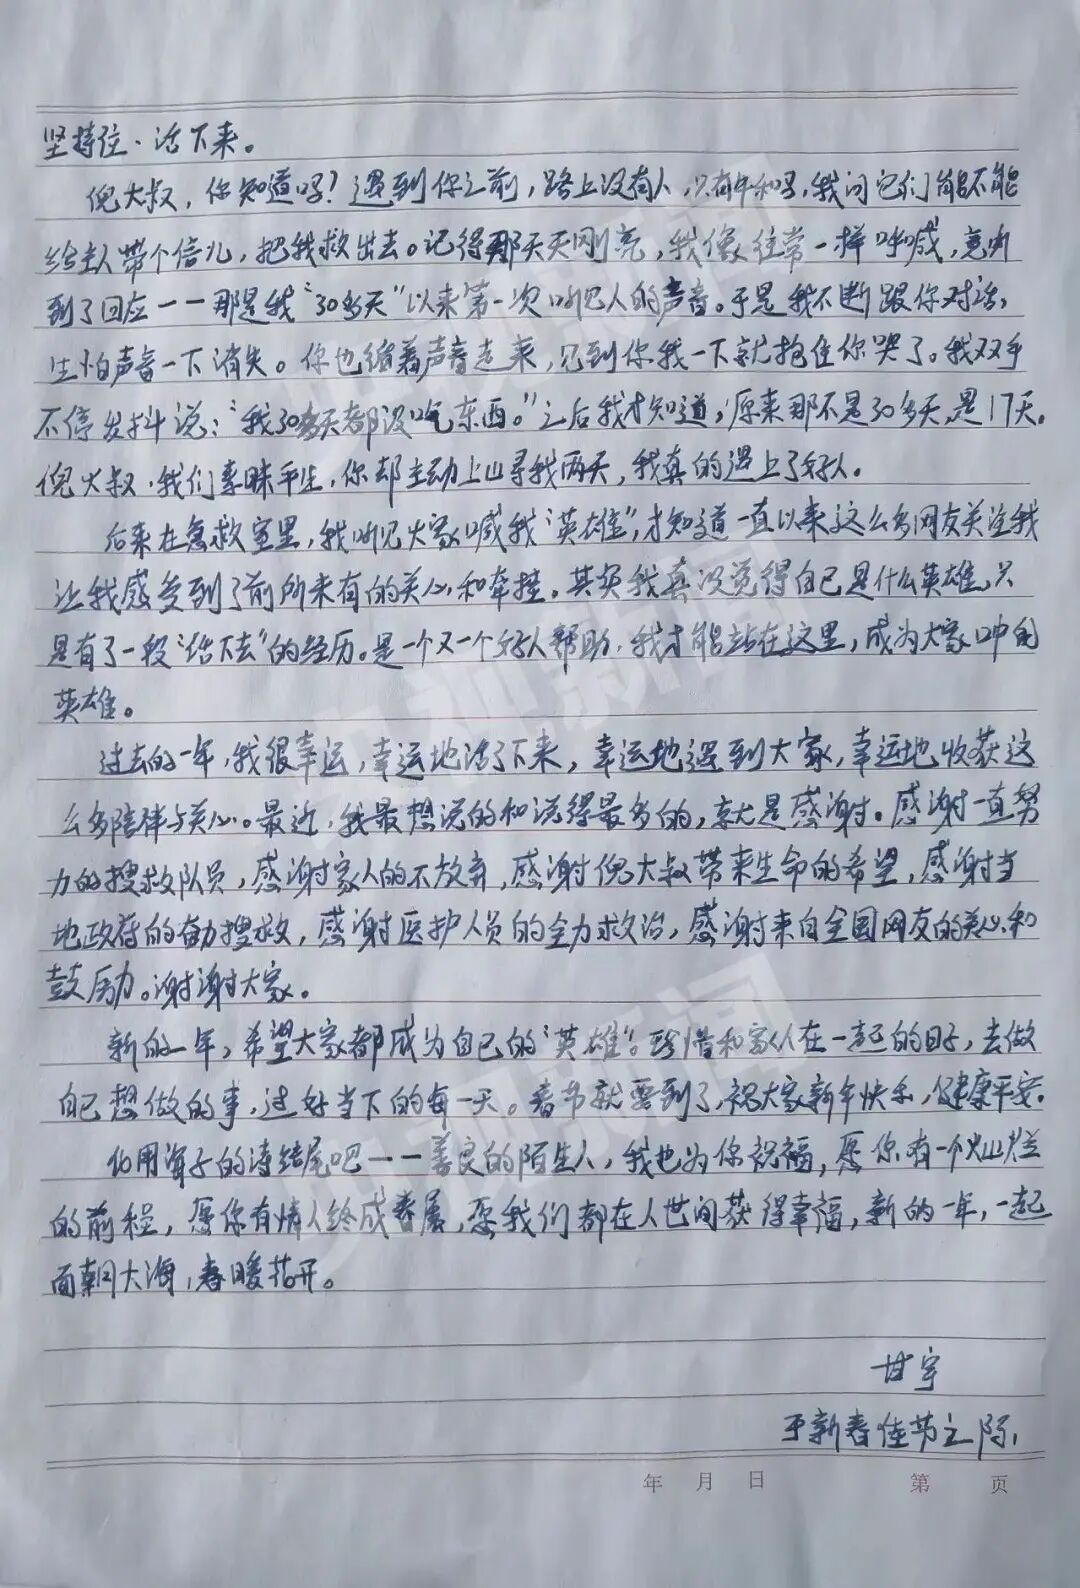 坚持住、活下来。
倪大叔，你知道吗？遇到你之前，路上没有人，只有牛和马，我问它们能不能
给主人带个信儿，把我救出去。记得那天天刚亮，我像往常一样呼喊，竟听
到了回应——那是我“30多天”以来第一次听见人的声音。于是我不断跟你对话，
生怕声音一下消失。你也循着声音走来，见到你我一下就抱住你哭了。我双手
不停发抖说：“我30多天都没吃东西。”之后我才知道，原来那不是30多天，是17天。
倪大叔，我们素昧平生，你却主动上山寻我两天，我真的遇上了好人。
后来在急救室里，我听见大家喊我“英雄”，才知道一直以来这么多网友关注我
让我感受到了前所未有的关心和牵挂。其实我真没觉得自己是什么英雄，只
是有了一段“活下去”的经历。是一个又一个好人帮助，我才能站在这里，成为大家口中的
英雄。
过去的一年，我很幸运，幸运地活了下来，幸运地遇到大家，幸运地收获这
么多陪伴与关心。最近，我最想说的和说得最多的，就是感谢。感谢一直努
力的搜救队员，感谢家人的不放弃，感谢倪大叔带来生命的希望，感谢当
地政府的奋力搜救，感谢医护人员的全力救治，感谢来自全国网友的关心和
鼓励。谢谢大家。
新的一年，希望大家都成为自己的“英雄”。珍惜和家人在一起的日子，去做
自己想做的事，过好当下的每一天。春节就要到了，祝大家新年快乐，健康平安。
化用海子的诗结尾吧——善良的陌生人，我也为你祝福，愿你有一个灿烂
的前程，愿你有情人终成眷属，愿我们都在人世间获得幸福，新的一年，一起
面朝大海，春暖花开。
甘宇
于新春佳节之际
年 月 日 第 页
央视新闻
央视新闻
央视新闻